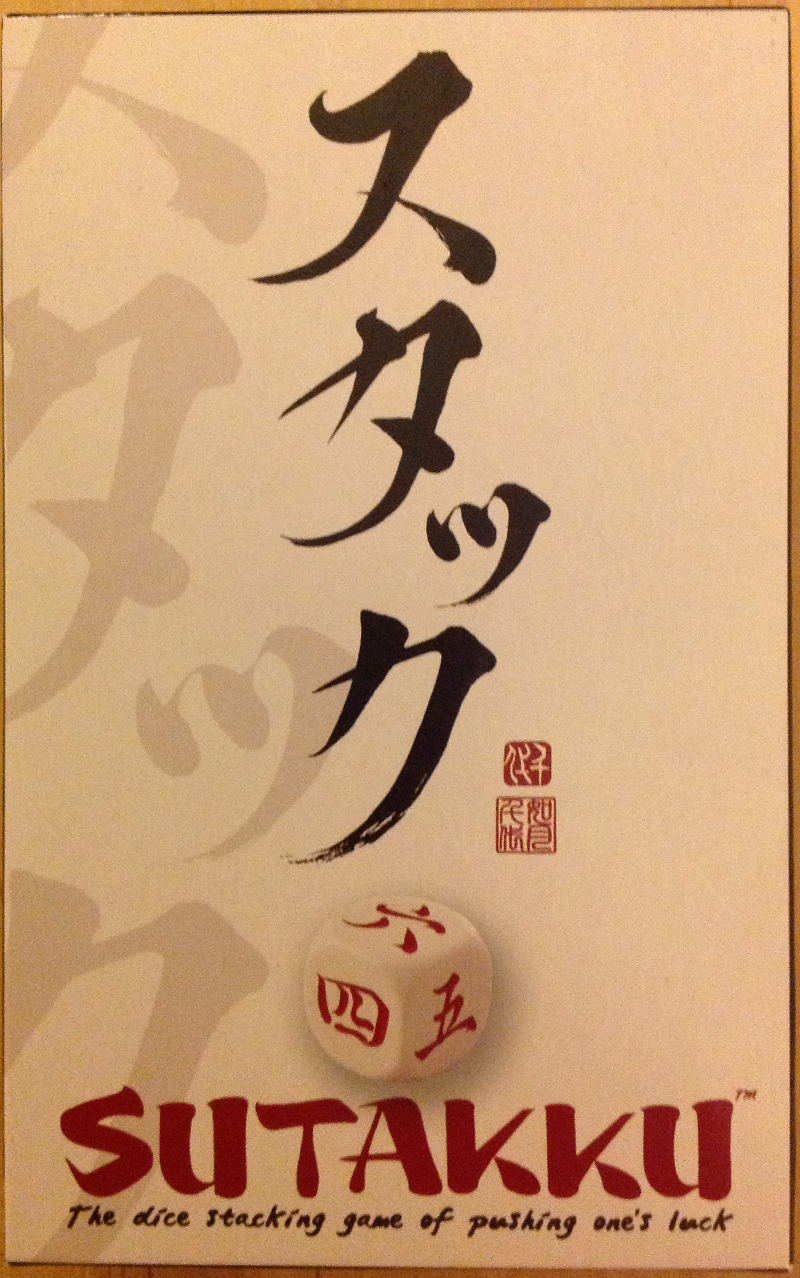 スタック
六
四 五
SUTAKKU™
The dice stacking game of pushing one's luck